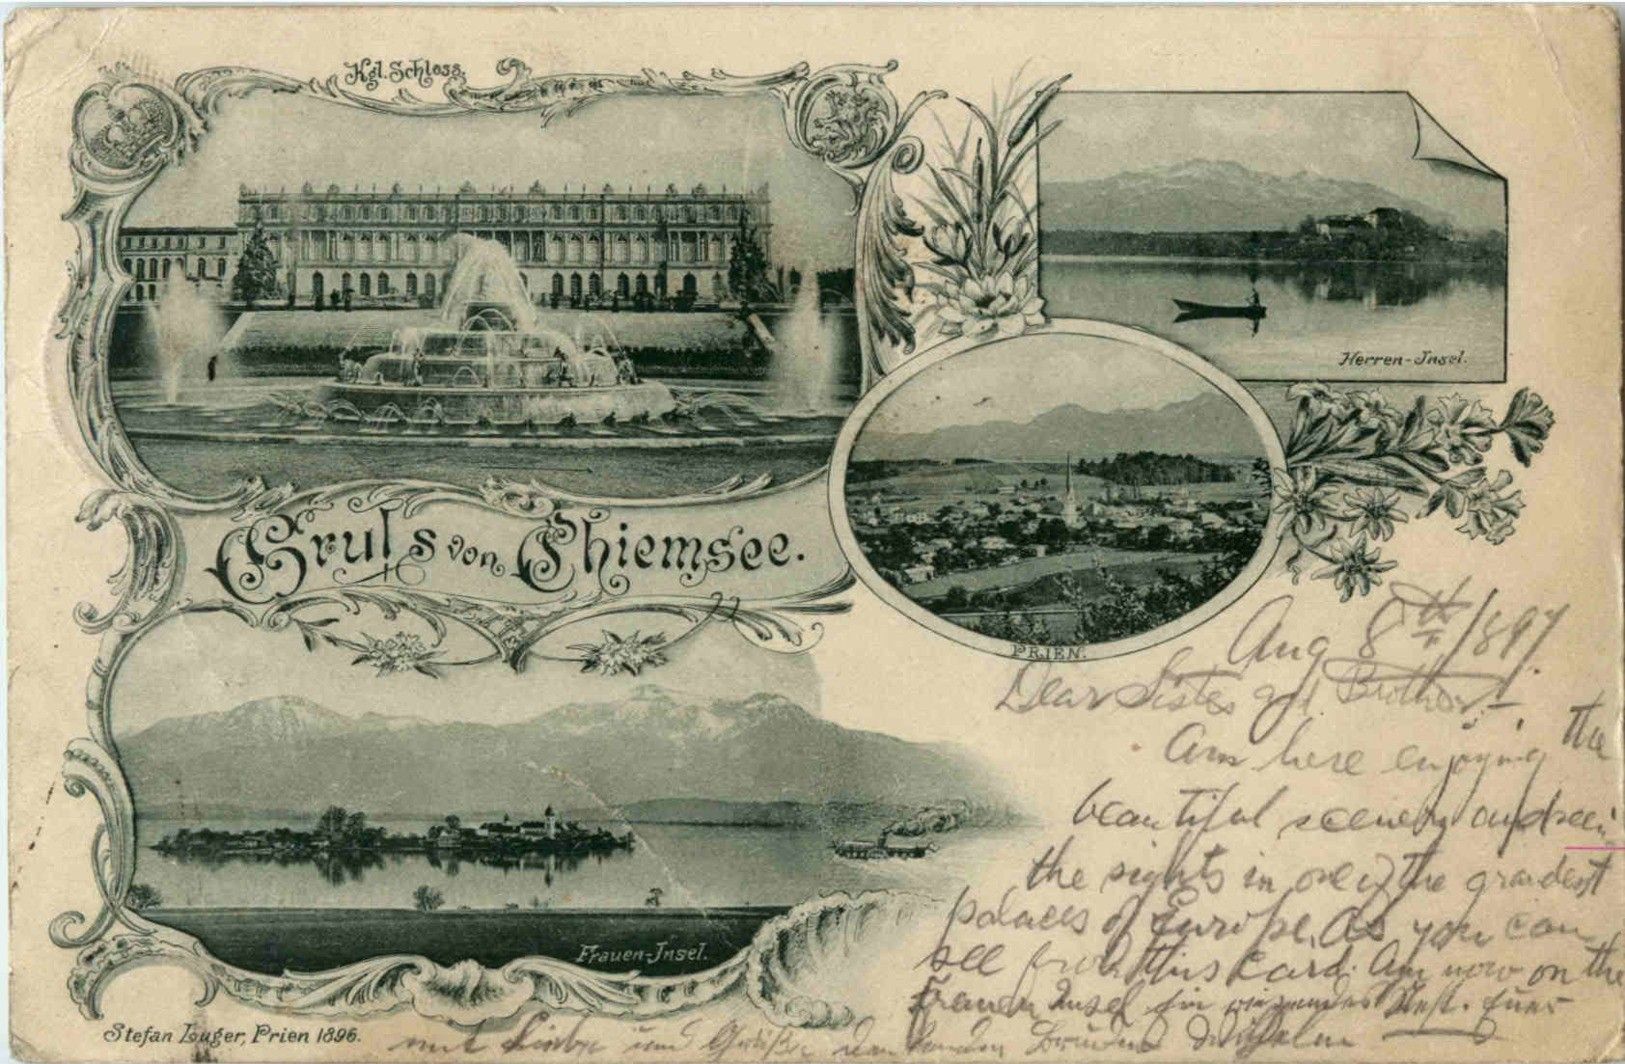 Kgl. Schloss.
Herren-Insel.
Gruß von Chiemsee.
PRIEN.
Frauen-Insel.
Stefan Luger, Prien 1896.
Aug 8th/1897.
Dear Sister and Brother
Am here enjoying the
beautiful scenery and seeing
the sights in one of the grandest
palaces of Europe, As you can
see from this card. Am now on the
Frauen Insel ein
mit Liebe und Grüße Bruder Wilhelm